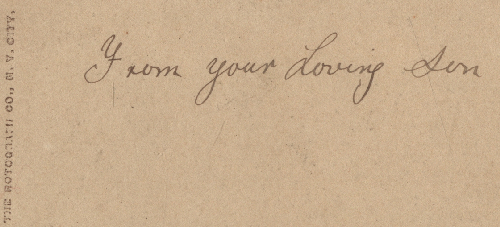 From your Loving Son
THE ROTOGRAPH CO., N. Y. CITY.